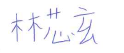 林芯玄